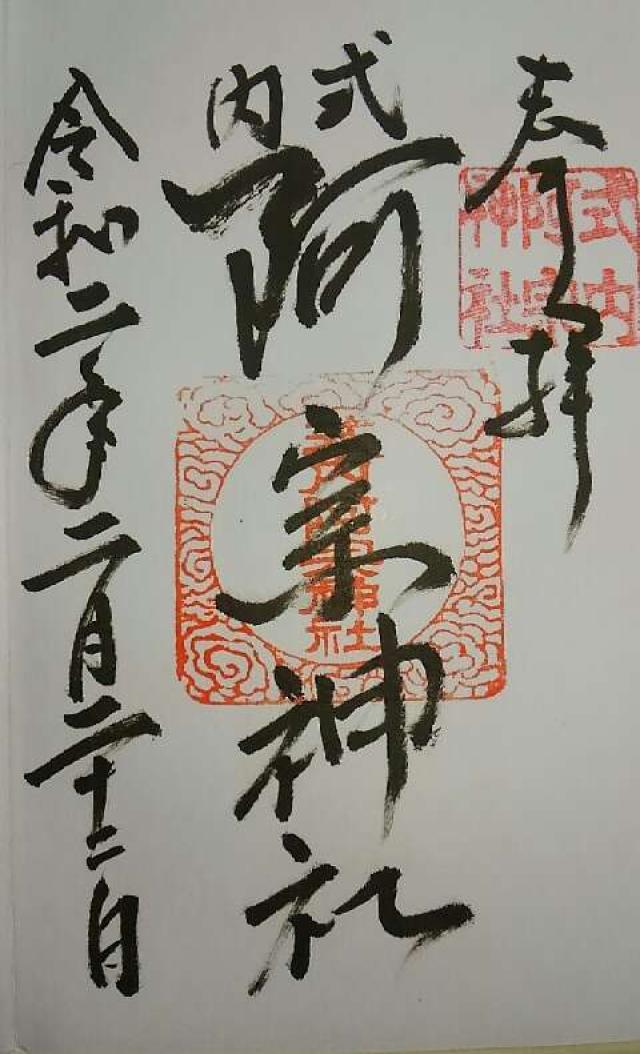 奉拝
式内
阿宗神社
令和二年二月二十二日
式内
阿宗
神社